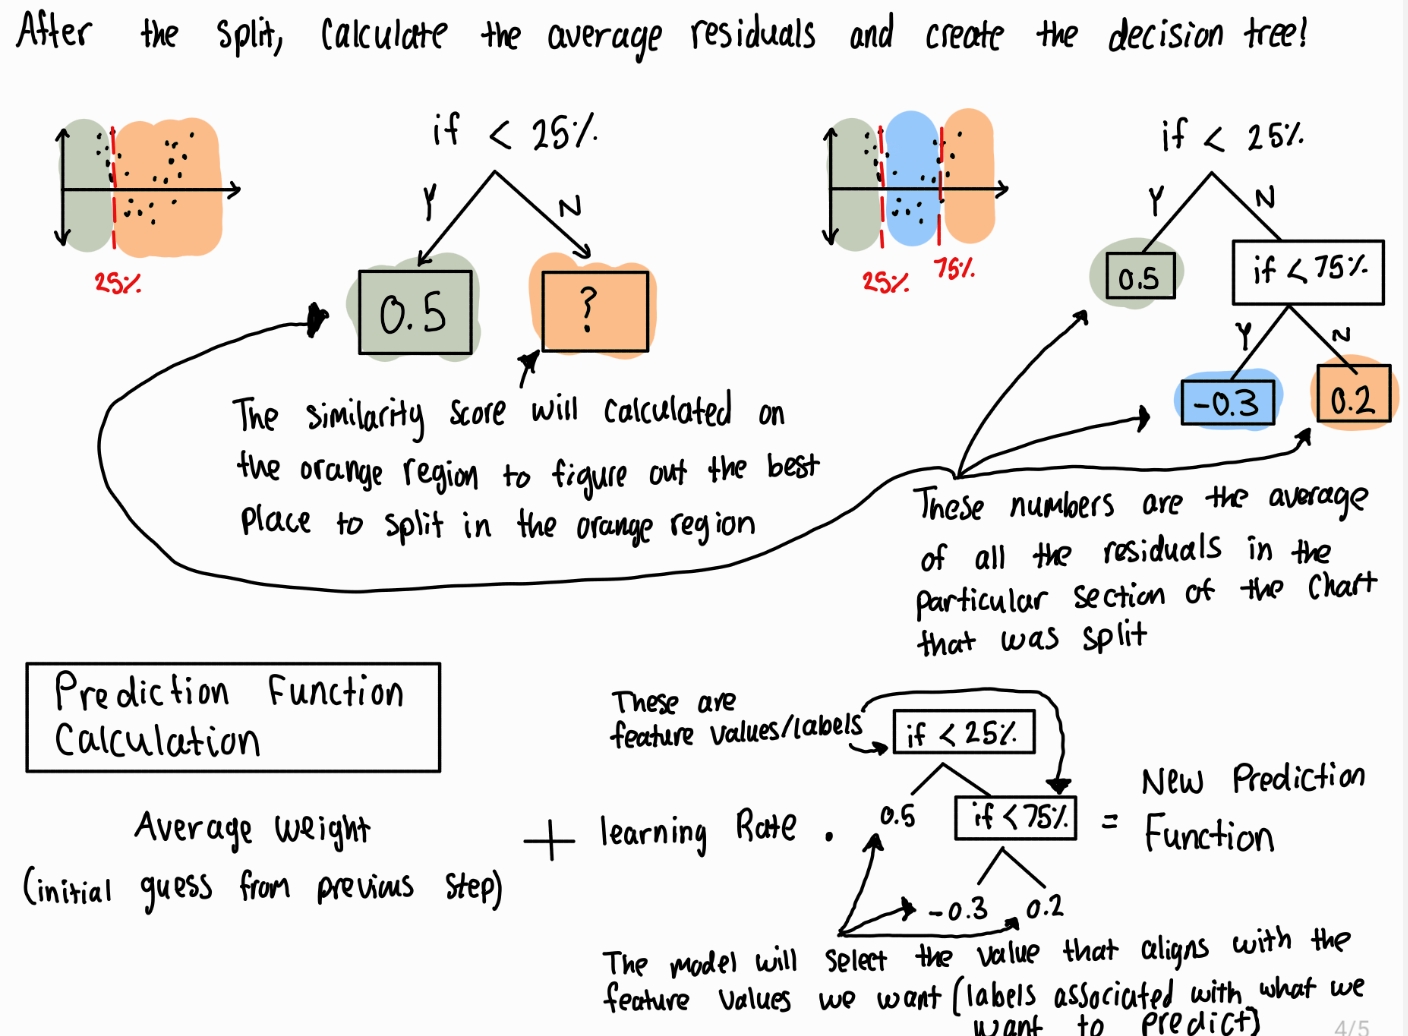 After the split, calculate the average residuals and create the decision tree!
if < 25%
Y
N
25%
0.5
?
The similarity score will calculated on
the orange region to figure out the best
place to split in the orange region
if < 25%
Y
N
25%
75%
0.5
if < 75%
Y
N
-0.3
0.2
These numbers are the average
of all the residuals in the
particular section of the chart
that was split
Prediction Function
Calculation
Average weight
(initial guess from previous step)
+
learning Rate .
These are
feature values/labels
if < 25%
0.5
if < 75%
-0.3
0.2
=
New Prediction
Function
The model will select the value that aligns with the
feature values we want (labels associated with what we
want to predict)
4/5